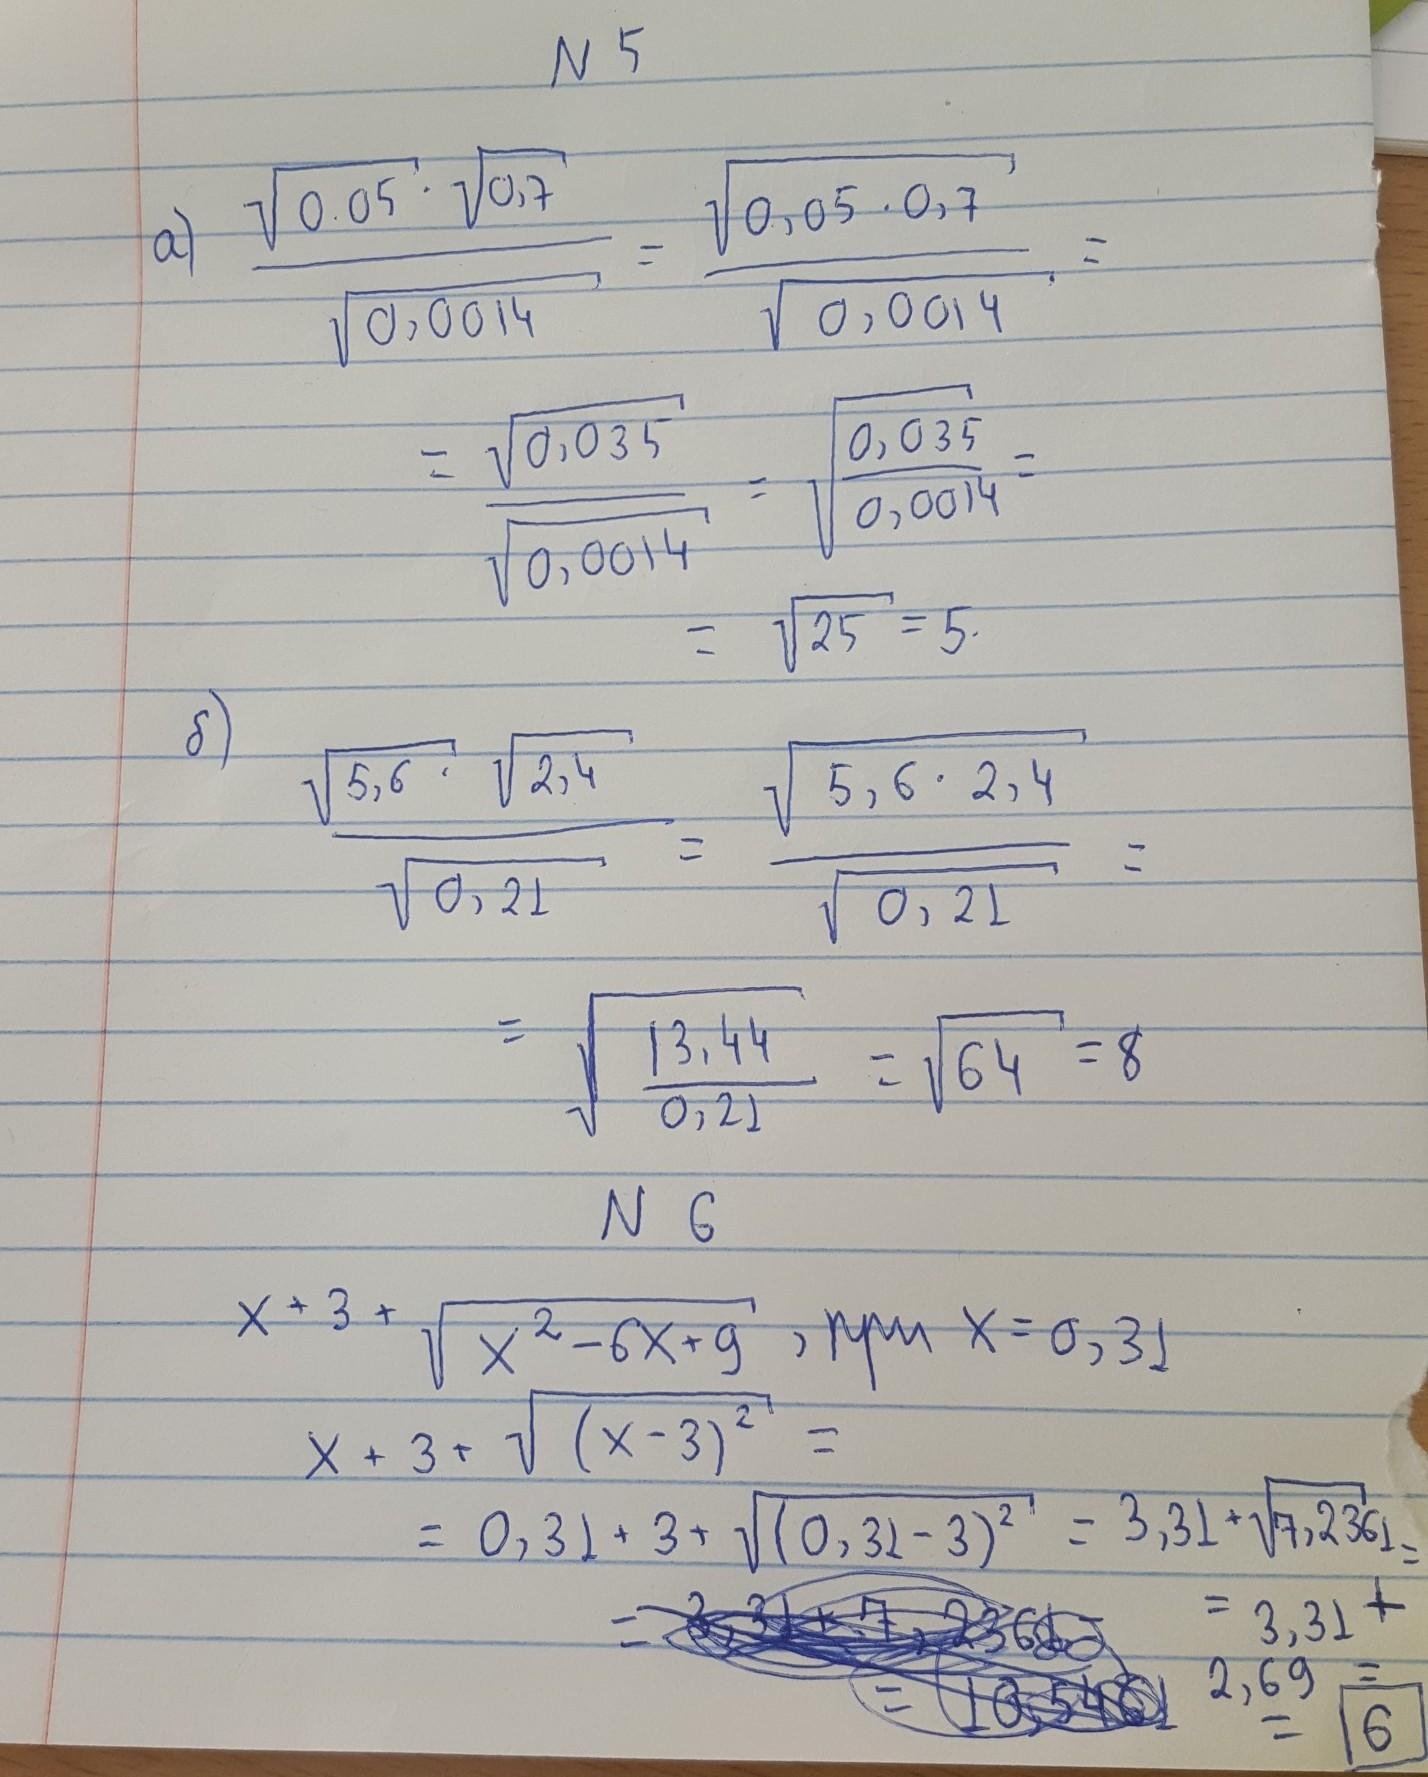 N 5
а) √0.05 · √0,7 / √0,0014 = √0,05 · 0,7 / √0,0014 =
= √0,035 / √0,0014 = √(0,035 / 0,0014) =
= √25 = 5.
б)
√5,6 · √2,4 / √0,21 = √5,6 · 2,4 / √0,21 =
= √(13,44 / 0,21) = √64 = 8
N 6
x + 3 + √x² - 6x + 9, при x = 0,31
x + 3 + √(x - 3)² =
= 0,31 + 3 + √(0,31 - 3)² = 3,31 + √7,2361 =
= 3,31 +
2,69 =
= 6